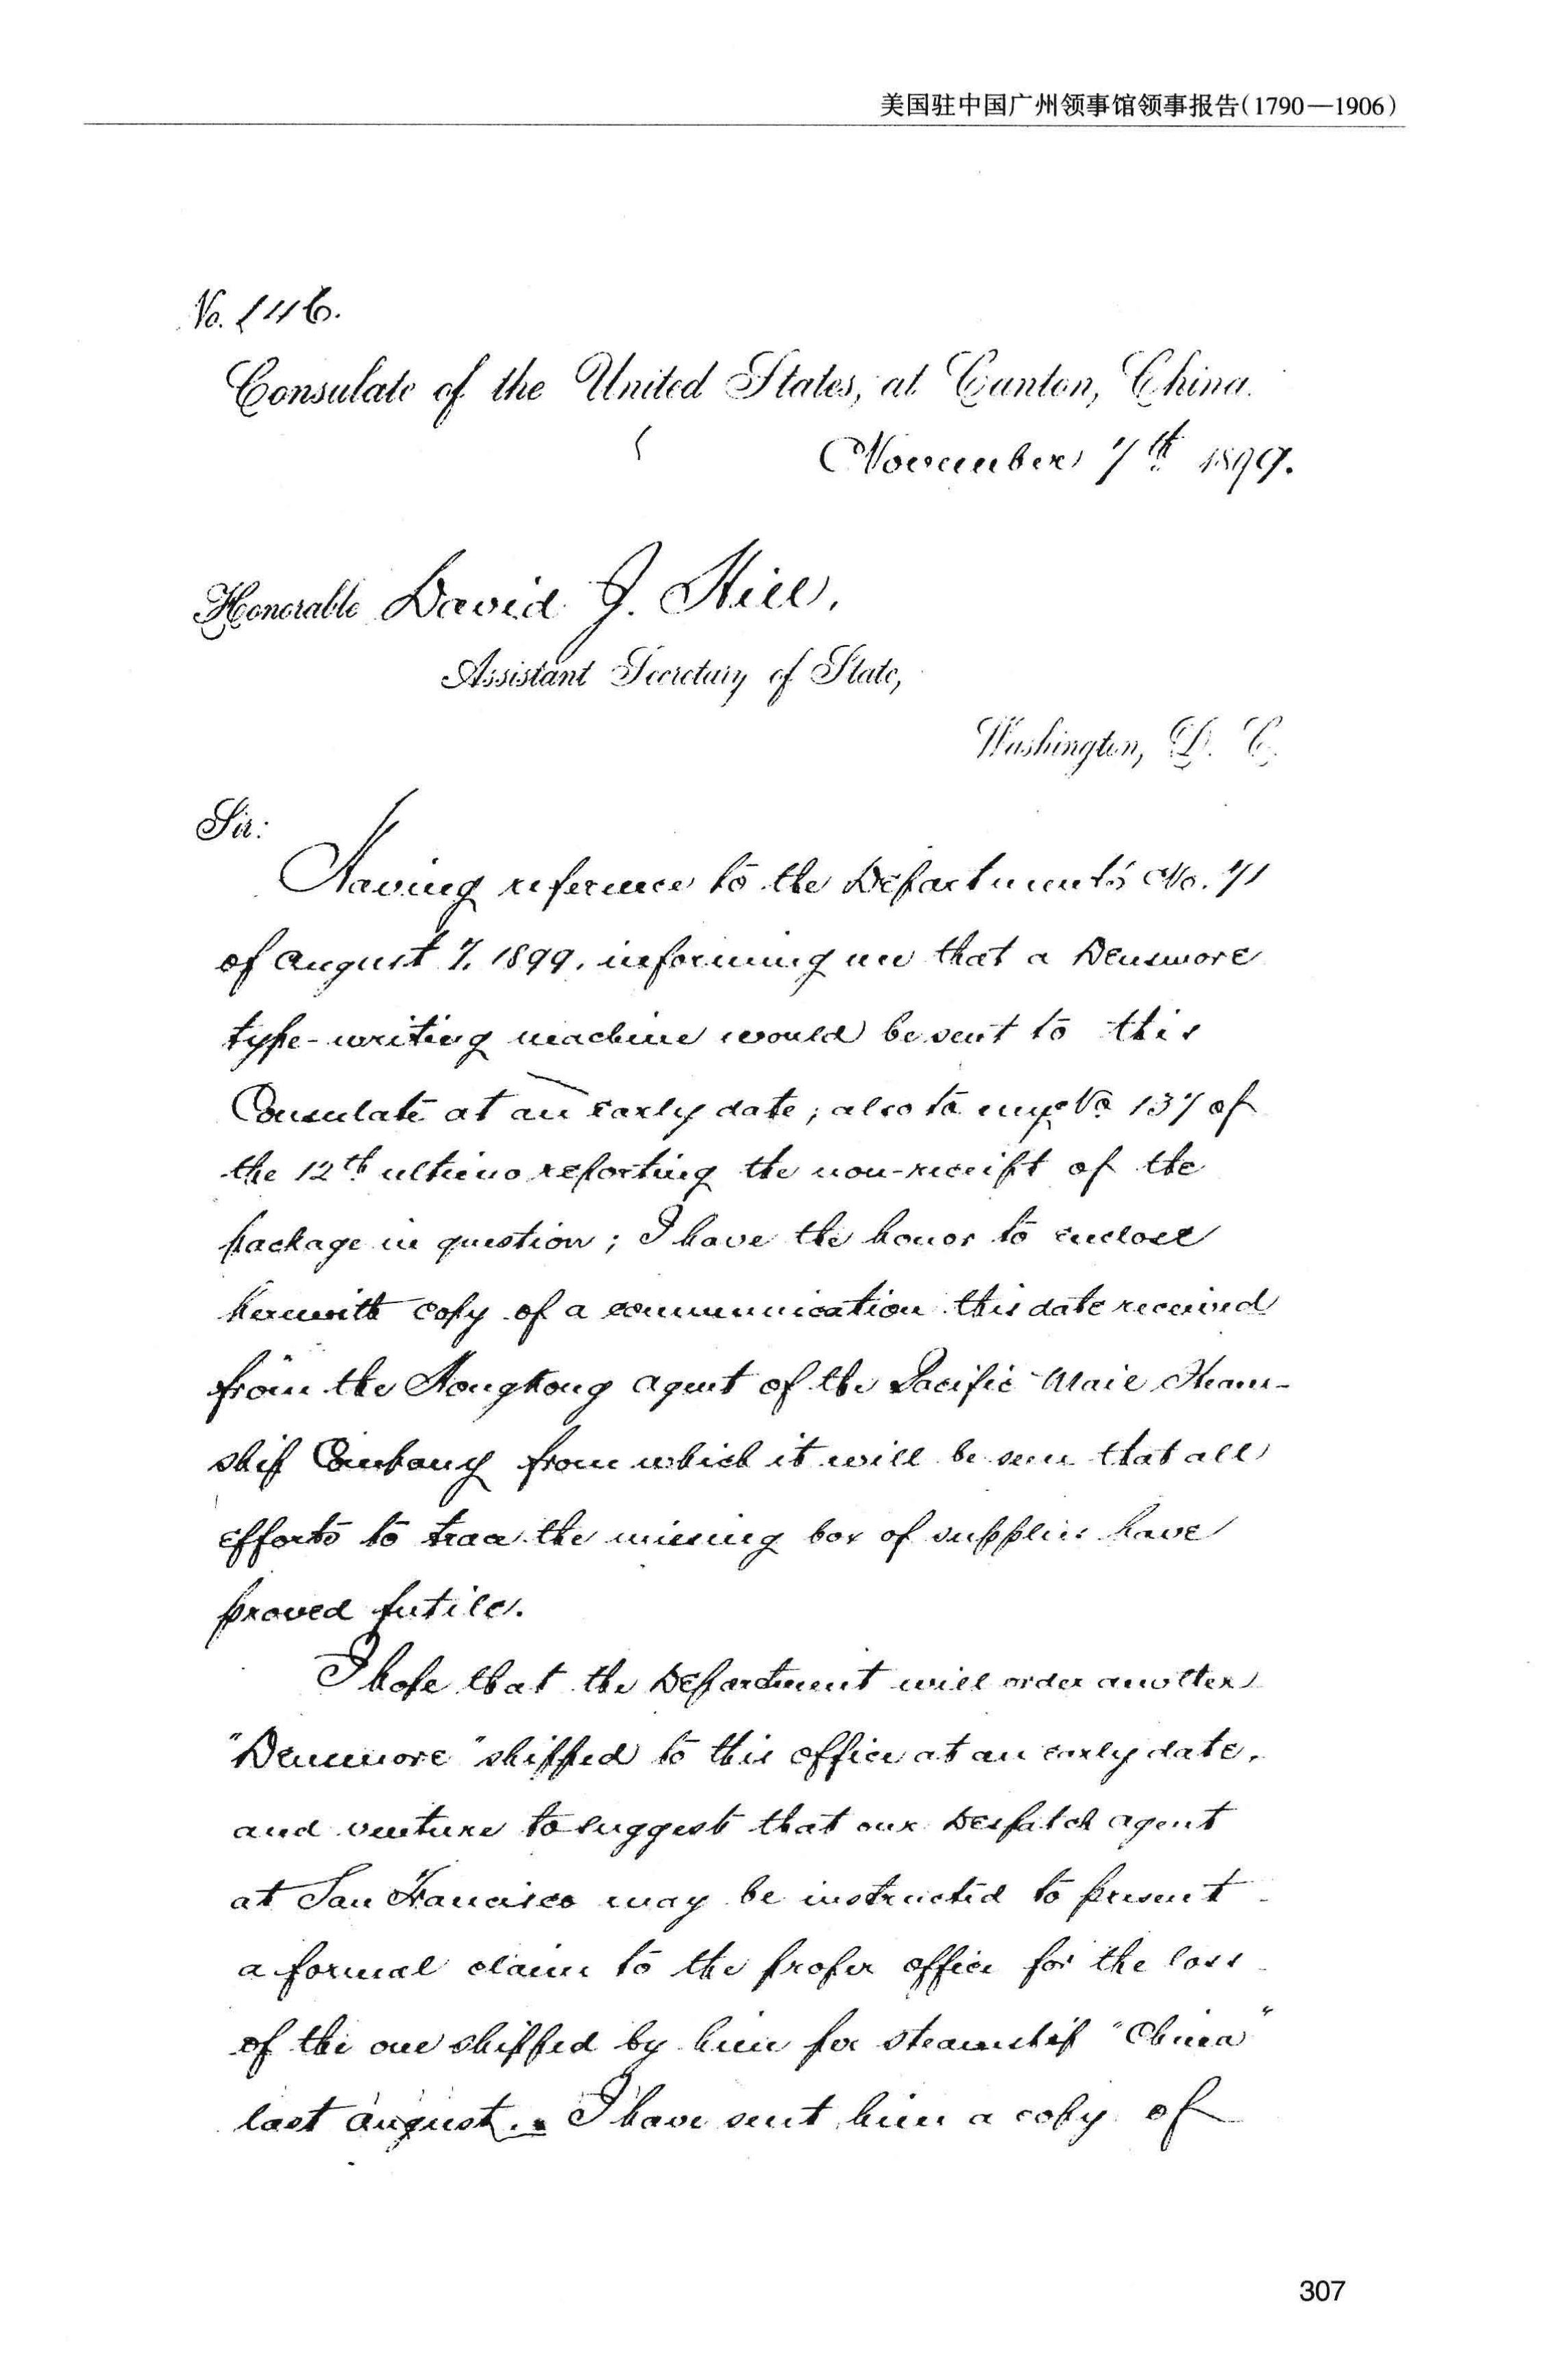 美国驻中国广州领事馆领事报告(1790—1906)
No. 146.
Consulate of the United States, at Canton, China.
November 7th 1899.
Honorable David J. Hill,
Assistant Secretary of State,
Washington, D. C.
Sir:
Having reference to the Department's No. 71
of August 7, 1899, informing me that a Densmore
type-writing machine would be sent to this
Consulate at an early date; also to my No 137 of
the 12th ultimo reporting the non-receipt of the
package in question; I have the honor to enclose
herewith copy of a communication this date received
from the Hongkong agent of the Pacific Mail Steam-
ship Company from which it will be seen that all
efforts to trace the missing box of supplies have
proved futile.
I hope that the Department will order another
"Densmore" shipped to this office at an early date,
and venture to suggest that our Despatch agent
at San Francisco may be instructed to present
a formal claim to the proper office for the loss
of the one shipped by him per steamship "China"
last August. I have sent him a copy of
307